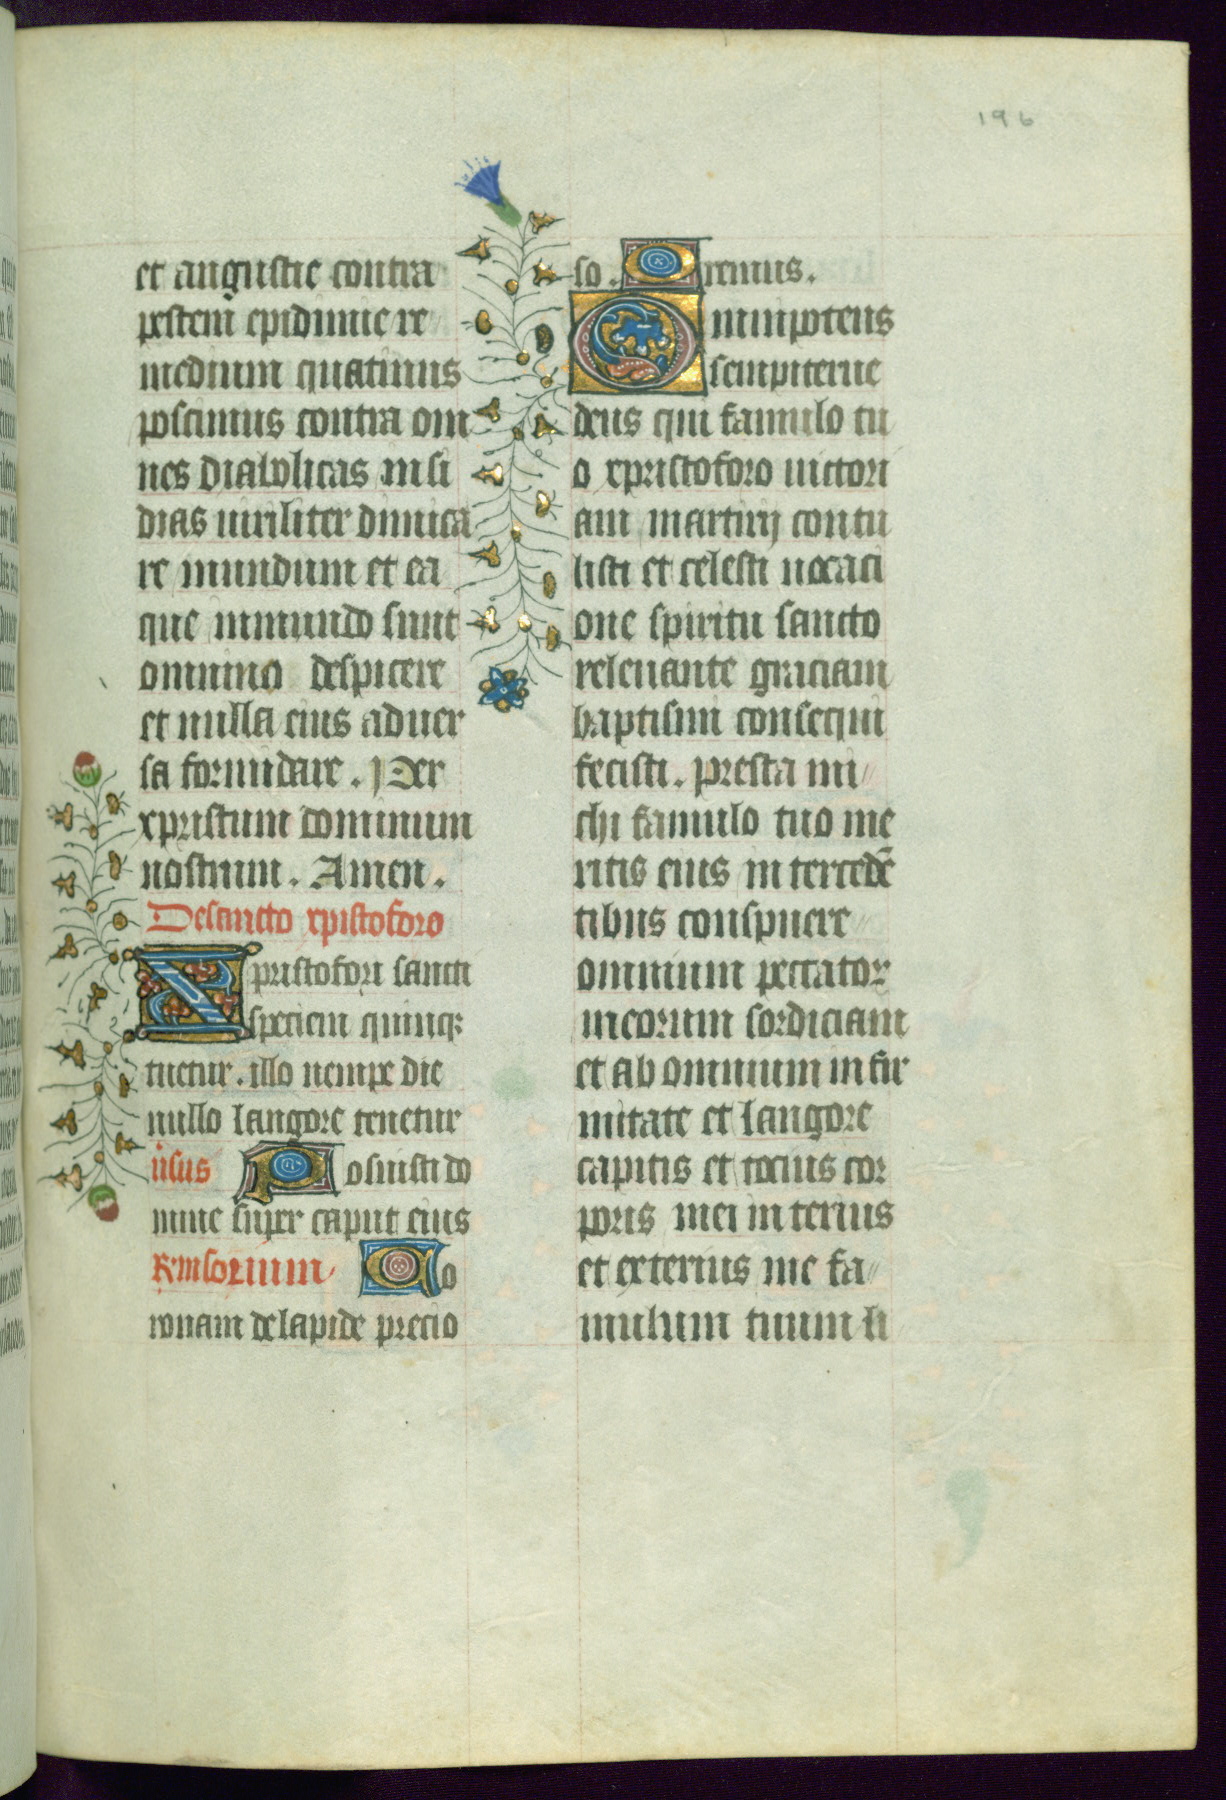 196
et angustie contra
pestem epidimie re
medium quatinus
poscimus contra om
nes diabolicas insi
dias uiriliter dimica
re mundum et ea
que inmundo sunt
omnino despicere
et nulla eius aduer
sa formidare. Per
xpristum dominum
nostrum. Amen.
De sancto xpistoforo
Xpristofori sancti
speciem quinq;
tuetur. illo nempe die
nullo langore tenetur
uſus Posuisti do
mine super caput eius
Rinsorium Co
ronam de lapide precio
so. Oremus.
Omnipotens
sempiterne
deus qui famulo tu
o xpristoforo uictori
am martirij contu
listi et celesti uocaci
one spiritu sancto
releuante graciam
baptismi consequi
fecisti. presta mi
chi famulo tuo me
ritis eius in tercedē
tibus conspuere
omnium peccator
meorum sordiciam
et ab omnium in fir
mitate et langore
capitis et tocius cor
poris mei in terius
et exterius me fa
mulum tuum li